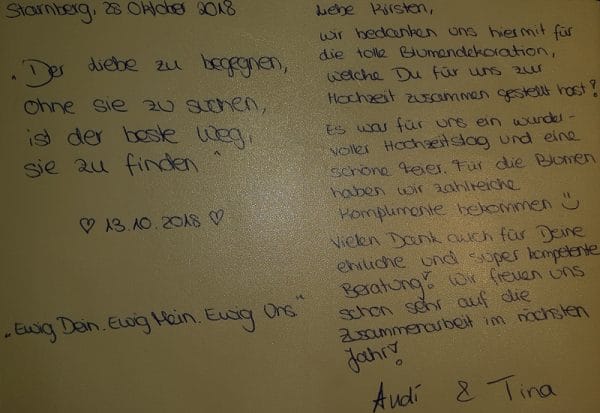 Starnberg, 28 Oktober 2018
"Der Liebe zu begegnen,
ohne sie zu suchen,
ist der beste Weg,
sie zu finden"
♡ 13.10.2018 ♡
"Ewig Dein. Ewig Mein. Ewig Uns."
Liebe Kirsten,
wir bedanken uns hiermit für
die tolle Blumendekoration,
welche Du für uns zur
Hochzeit zusammen gestellt hast!
Es war für uns ein wunder-
voller Hochzeitstag und eine
schöne Feier. Für die Blumen
haben wir zahlreiche
Komplimente bekommen ☺
Vielen Dank auch für Deine
ehrliche und super kompetente
Beratung! Wir freuen uns
schon sehr auf die
Zusammenarbeit im nächsten
Jahr!
Andi & Tina